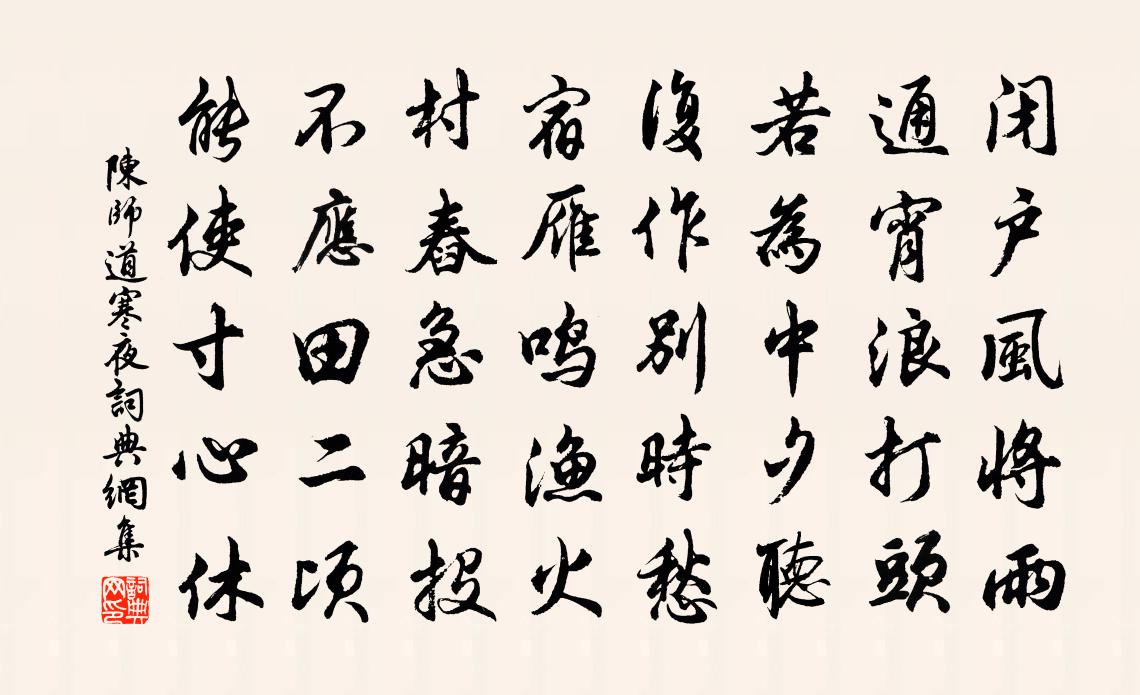 闭户風将雨
通宵浪打頭
若為中夕聽
復作别時愁
宿雁鸣漁火
村舂急暗投
不應田二頃
能使寸心休
陳師道寒夜詞典網集
詞典网印